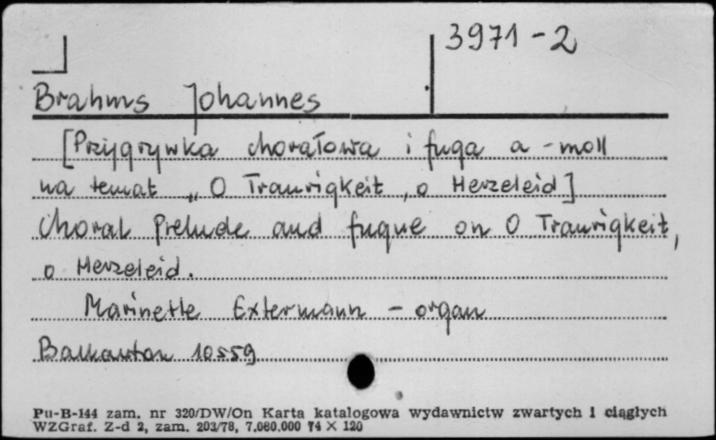 3971-2
Brahms Johannes
[Przygrywka chorałowa i fuga a-moll
na temat „O Traurigkeit, o Herzeleid]
Choral Prelude and fugue on O Traurigkeit,
o Herzeleid.
Marinette Extermann - organ
Balkanton 10559
Pu-B-144 zam. nr 320/DW/On Karta katalogowa wydawnictw zwartych i ciągłych
WZGraf. Z-d 2, zam. 203/78, 7.060.000 74 X 120